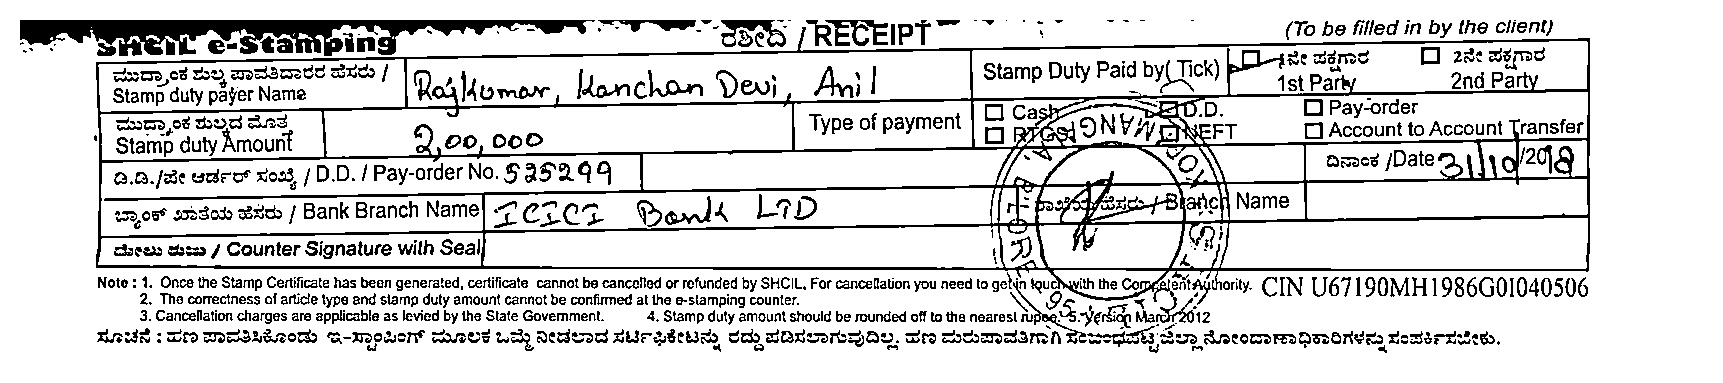 SHCIL e-Stamping ರಶೀದಿ / RECEIPT (To be filled in by the client)
ಮುದ್ರಾಂಕ ಶುಲ್ಕ ಪಾವತಿದಾರರ ಹೆಸರು /
Stamp duty payer Name Rajkumar, Kanchan Devi, Anil
Stamp Duty Paid by( Tick) 1ನೇ ಪಕ್ಷಗಾರ 1st Party 2ನೇ ಪಕ್ಷಗಾರ 2nd Party
ಮುದ್ರಾಂಕ ಶುಲ್ಕದ ಮೊತ್ತ
Stamp duty Amount 2,00,000
Type of payment Cash D.D. Pay-order
RTGS NEFT Account to Account Transfer
ಡಿ.ಡಿ./ಪೇ ಆರ್ಡರ್ ಸಂಖ್ಯೆ / D.D. / Pay-order No. 525299 ದಿನಾಂಕ /Date 31/10/2018
ಬ್ಯಾಂಕ್ ಖಾತೆಯ ಹೆಸರು / Bank Branch Name ICICI Bank LTD ಶಾಖೆಯ ಹೆಸರು / Branch Name
ಮೇಲು ರುಜು / Counter Signature with Seal
Note : 1. Once the Stamp Certificate has been generated, certificate cannot be cancelled or refunded by SHCIL. For cancellation you need to get in touch with the Competent Authority. CIN U67190MH1986G01040506
2. The correctness of article type and stamp duty amount cannot be confirmed at the e-stamping counter.
3. Cancellation charges are applicable as levied by the State Government. 4. Stamp duty amount should be rounded off to the nearest rupee. 5. Version March 2012
ಸೂಚನೆ : ಹಣ ಪಾವತಿಸಿಕೊಂಡು ಇ-ಸ್ಟಾಂಪಿಂಗ್ ಮೂಲಕ ಒಮ್ಮೆ ನೀಡಲಾದ ಸರ್ಟಿಫಿಕೇಟನ್ನು ರದ್ದು ಪಡಿಸಲಾಗುವುದಿಲ್ಲ. ಹಣ ಮರುಪಾವತಿಗಾಗಿ ಸಂಬಂಧಪಟ್ಟ ಜಿಲ್ಲಾ ನೋಂದಾಣಾಧಿಕಾರಿಗಳನ್ನು ಸಂಪರ್ಕಿಸಬೇಕು.